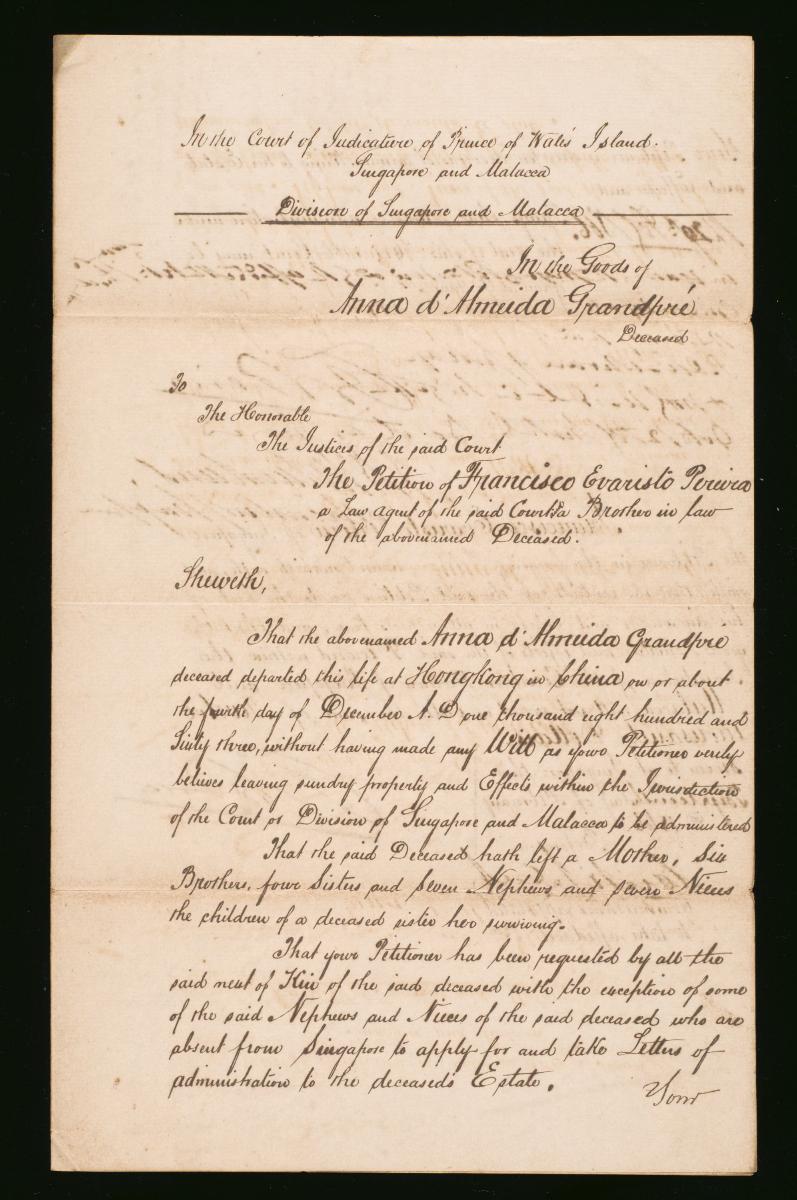 In the Court of Judicature of Prince of Wales' Island.
Singapore and Malacca
Division of Singapore and Malacca
In the Goods of
Anna d'Almeida Grandpré
Deceased
To
The Honorable
The Justices of the said Court
The Petition of Francisco Evaristo Pereira
a Law agent of the said Court & a Brother in law
of the abovenamed Deceased.
Sheweth,
That the abovenamed Anna d'Almeida Grandpré
deceased departed this life at HongKong in China on or about
the fourth day of December A.D one thousand eight hundred and
Sixty three, without having made any Will as your Petitioner verily
belives leaving sundry property and Effects within the Jurisdiction
of the Court or Division of Singapore and Malacca to be administered
That the said Deceased hath left a Mother, Six
Brothers, four Sisters and Seven Nephews and seven Nieces
the children of a deceased sister her surviving.
That your Petitioner has been requested by all the
said next of Kin of the said deceased with the exception of some
of the said Nephews and Nieces of the said deceased who are
absent from Singapore to apply for and take Letters of
administration to the deceased's Estate.
Your